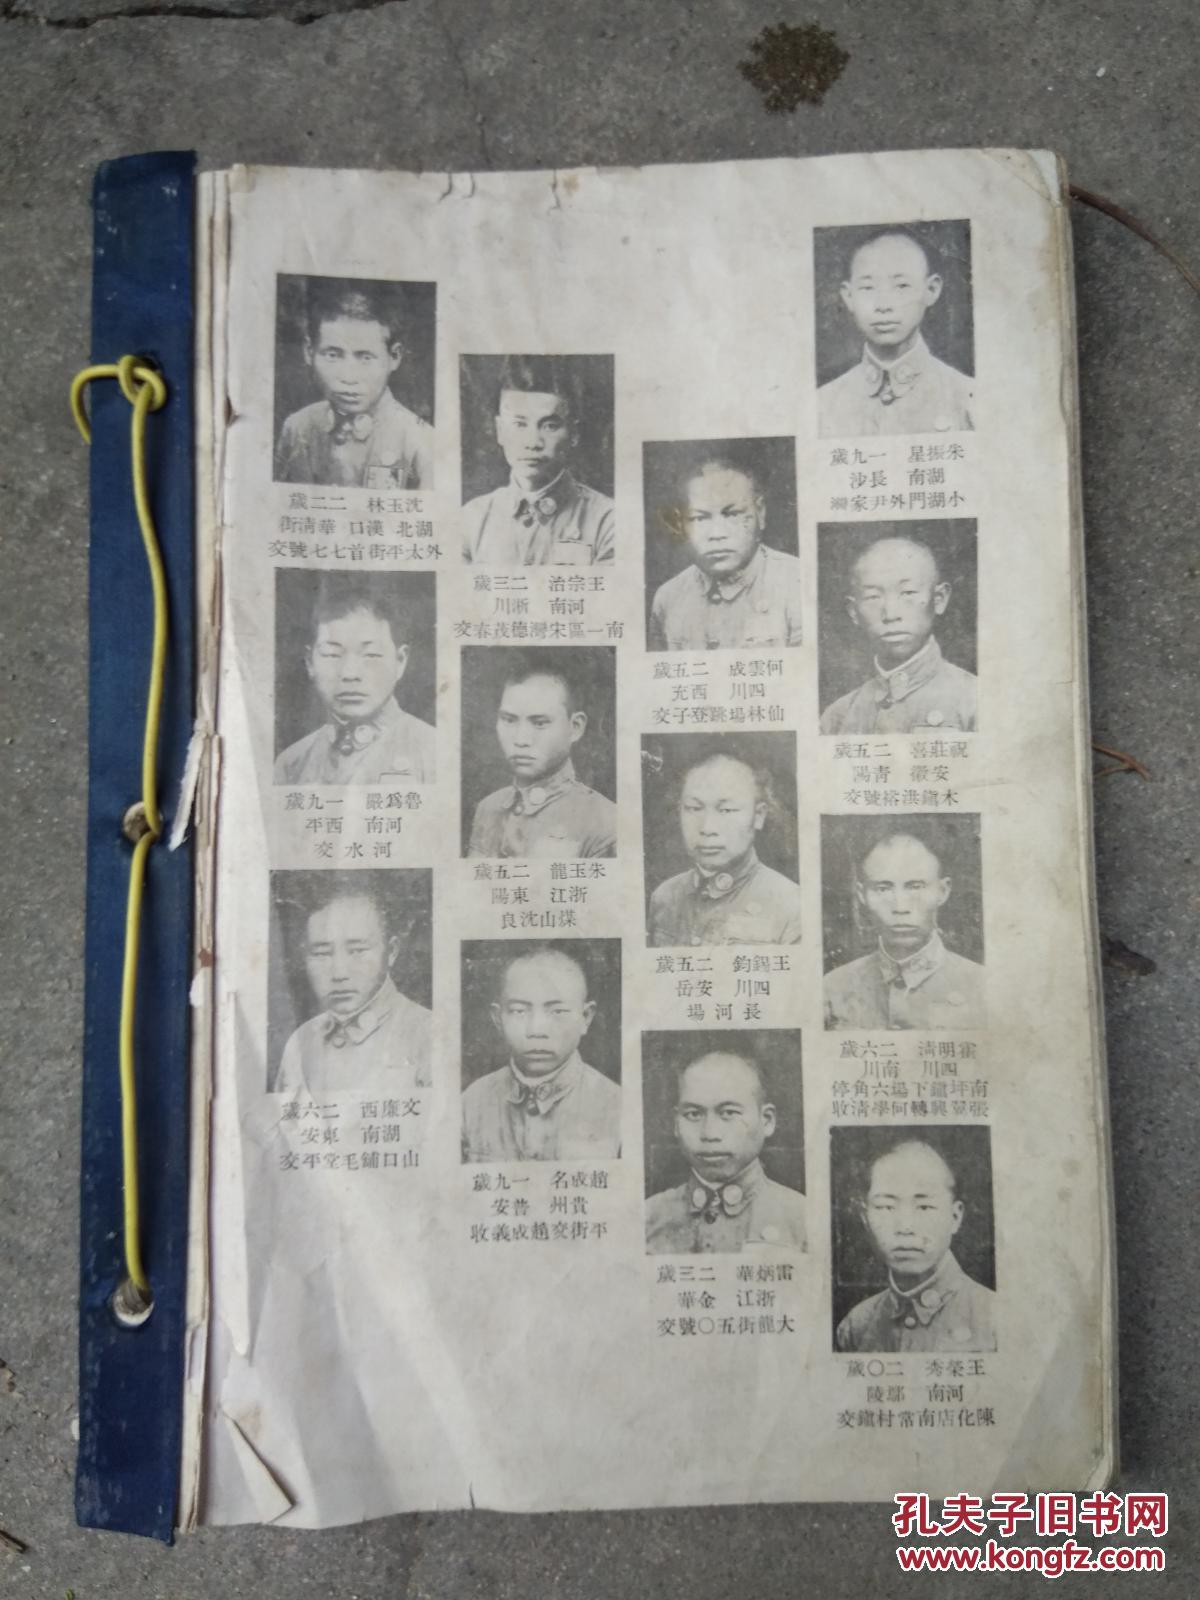 朱振星 一九歲
湖南 長沙
小湖門外尹家灣
祝莊喜 二五歲
安徽 青陽
木鎮洪裕號交
霍明清 二六歲
四川 南川
南坪鎮下場六角停
張翼興轉何學清收
王榮秀 二〇歲
河南 鄢陵
陳化店南常村鎮交
何雲成 二五歲
四川 西充
仙林場跳登子交
王錫鈞 二五歲
四川 安岳
長河場
雷炳華 二三歲
浙江 金華
大龍街五〇號交
王宗治 二三歲
河南 淅川
南一區宋灣德茂春交
朱玉龍 二五歲
浙江 東陽
煤山沈良
趙成名 一九歲
貴州 普安
平街交趙成義收
沈玉林 二二歲
湖北 漢口 華清街
外太平街首七七號交
魯爲嚴 一九歲
河南 西平
河水交
文廉西 二六歲
湖南 東安
山口鋪毛堂平交
孔夫子旧书网
www.kongfz.com